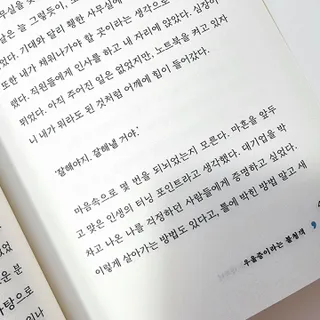 무실을
날은 늘 그렇듯이,
았다. 기대와 달리 휑한 사무실
또한 내가 채워나가야 할 곳이라는 생각으로
했다. 직원들에게 인사를 하고 내 자리에 앉았다. 심장이
뛰었다. 아직 주어진 일은 없었지만, 노트북을 켜고 있자
니 내가 뭐라도 된 것처럼 어깨에 힘이 들어갔다.
'잘해야지. 잘해낼 거야.'
마음속으로 몇 번을 되뇌었는지 모른다. 마흔을 앞두
고 맞은 인생의 터닝 포인트라고 생각했다. 대기업을 박
차고 나온 나를 걱정하던 사람들에게 증명하고 싶었다.
이렇게 살아가는 방법도 있다고, 틀에 박힌 방법 말고 세
우울증이라는 불청객
었
운 분
바탕으로
이나